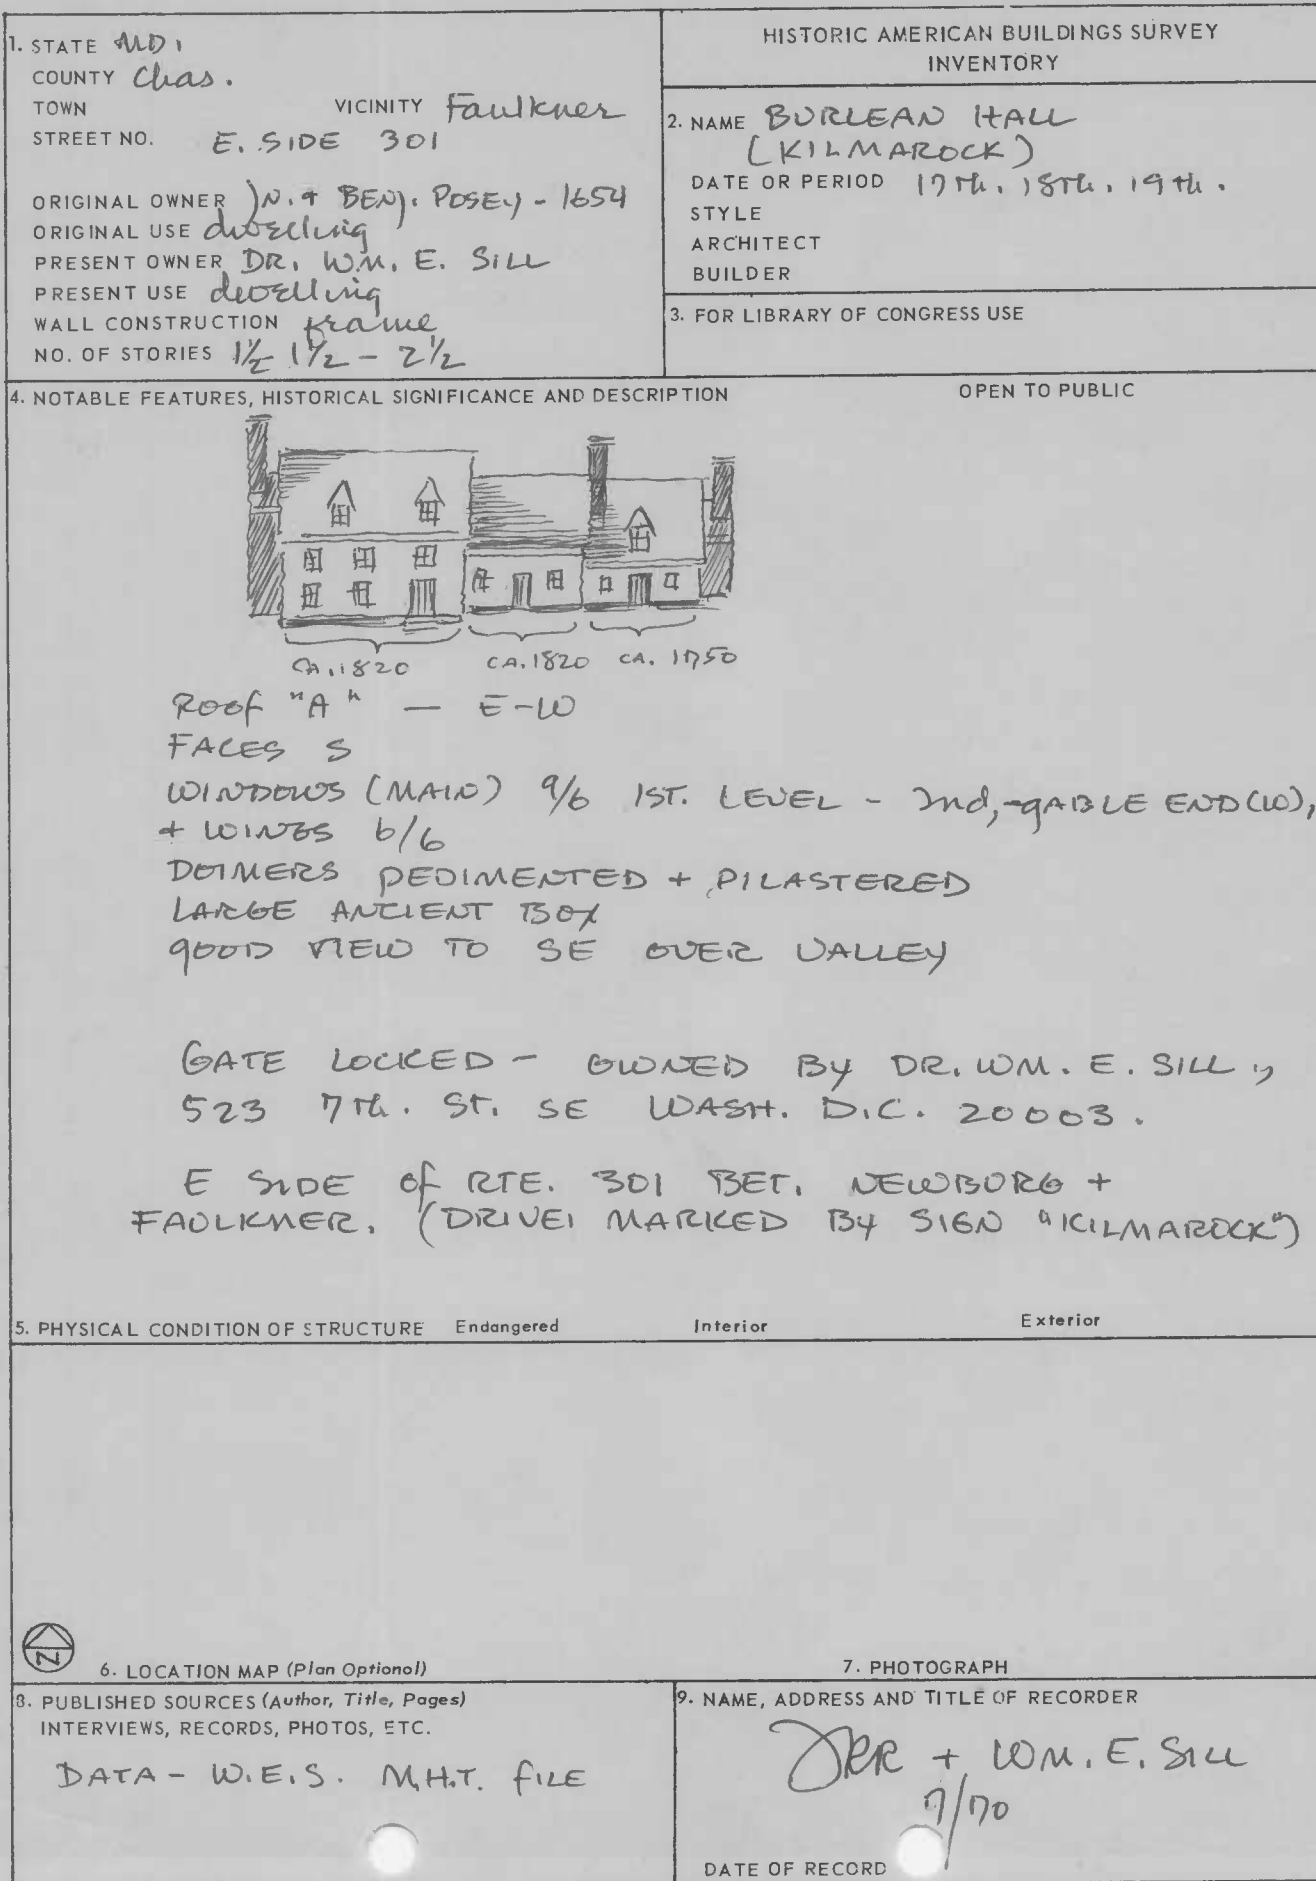 1. STATE MD.
COUNTY Chas.
TOWN VICINITY Faulkner
STREET NO. E. SIDE 301
ORIGINAL OWNER JN. + BENJ. POSEY - 1654
ORIGINAL USE dwelling
PRESENT OWNER DR. WM. E. SILL
PRESENT USE dwelling
WALL CONSTRUCTION frame
NO. OF STORIES 1½ 1½ - 2½
HISTORIC AMERICAN BUILDINGS SURVEY
INVENTORY
2. NAME BURLEAN HALL
(KILMAROCK)
DATE OR PERIOD 17th. 18th. 19th.
STYLE
ARCHITECT
BUILDER
3. FOR LIBRARY OF CONGRESS USE
4. NOTABLE FEATURES, HISTORICAL SIGNIFICANCE AND DESCRIPTION OPEN TO PUBLIC
CA. 1820 CA. 1820 CA. 1750
ROOF "A" — E-W
FACES S
WINDOWS (MAIN) 9/6 1ST. LEVEL - 2nd,-GABLE END (W),
+ WINGS 6/6
DOIMERS PEDIMENTED + PILASTERED
LARGE ANCIENT BOX
GOOD VIEW TO SE OVER VALLEY
GATE LOCKED - OWNED BY DR. WM. E. SILL,
523 7th. ST. SE WASH. D.C. 20003.
E SIDE of RTE. 301 BET. NEWBURG +
FAULKNER. (DRIVE MARKED BY SIGN "KILMAROCK")
5. PHYSICAL CONDITION OF STRUCTURE Endangered Interior Exterior
N
6. LOCATION MAP (Plan Optional)
7. PHOTOGRAPH
8. PUBLISHED SOURCES (Author, Title, Pages)
INTERVIEWS, RECORDS, PHOTOS, ETC.
DATA - W.E.S. M.H.T. FILE
9. NAME, ADDRESS AND TITLE OF RECORDER
JRR + WM. E. SILL
7/70
DATE OF RECORD